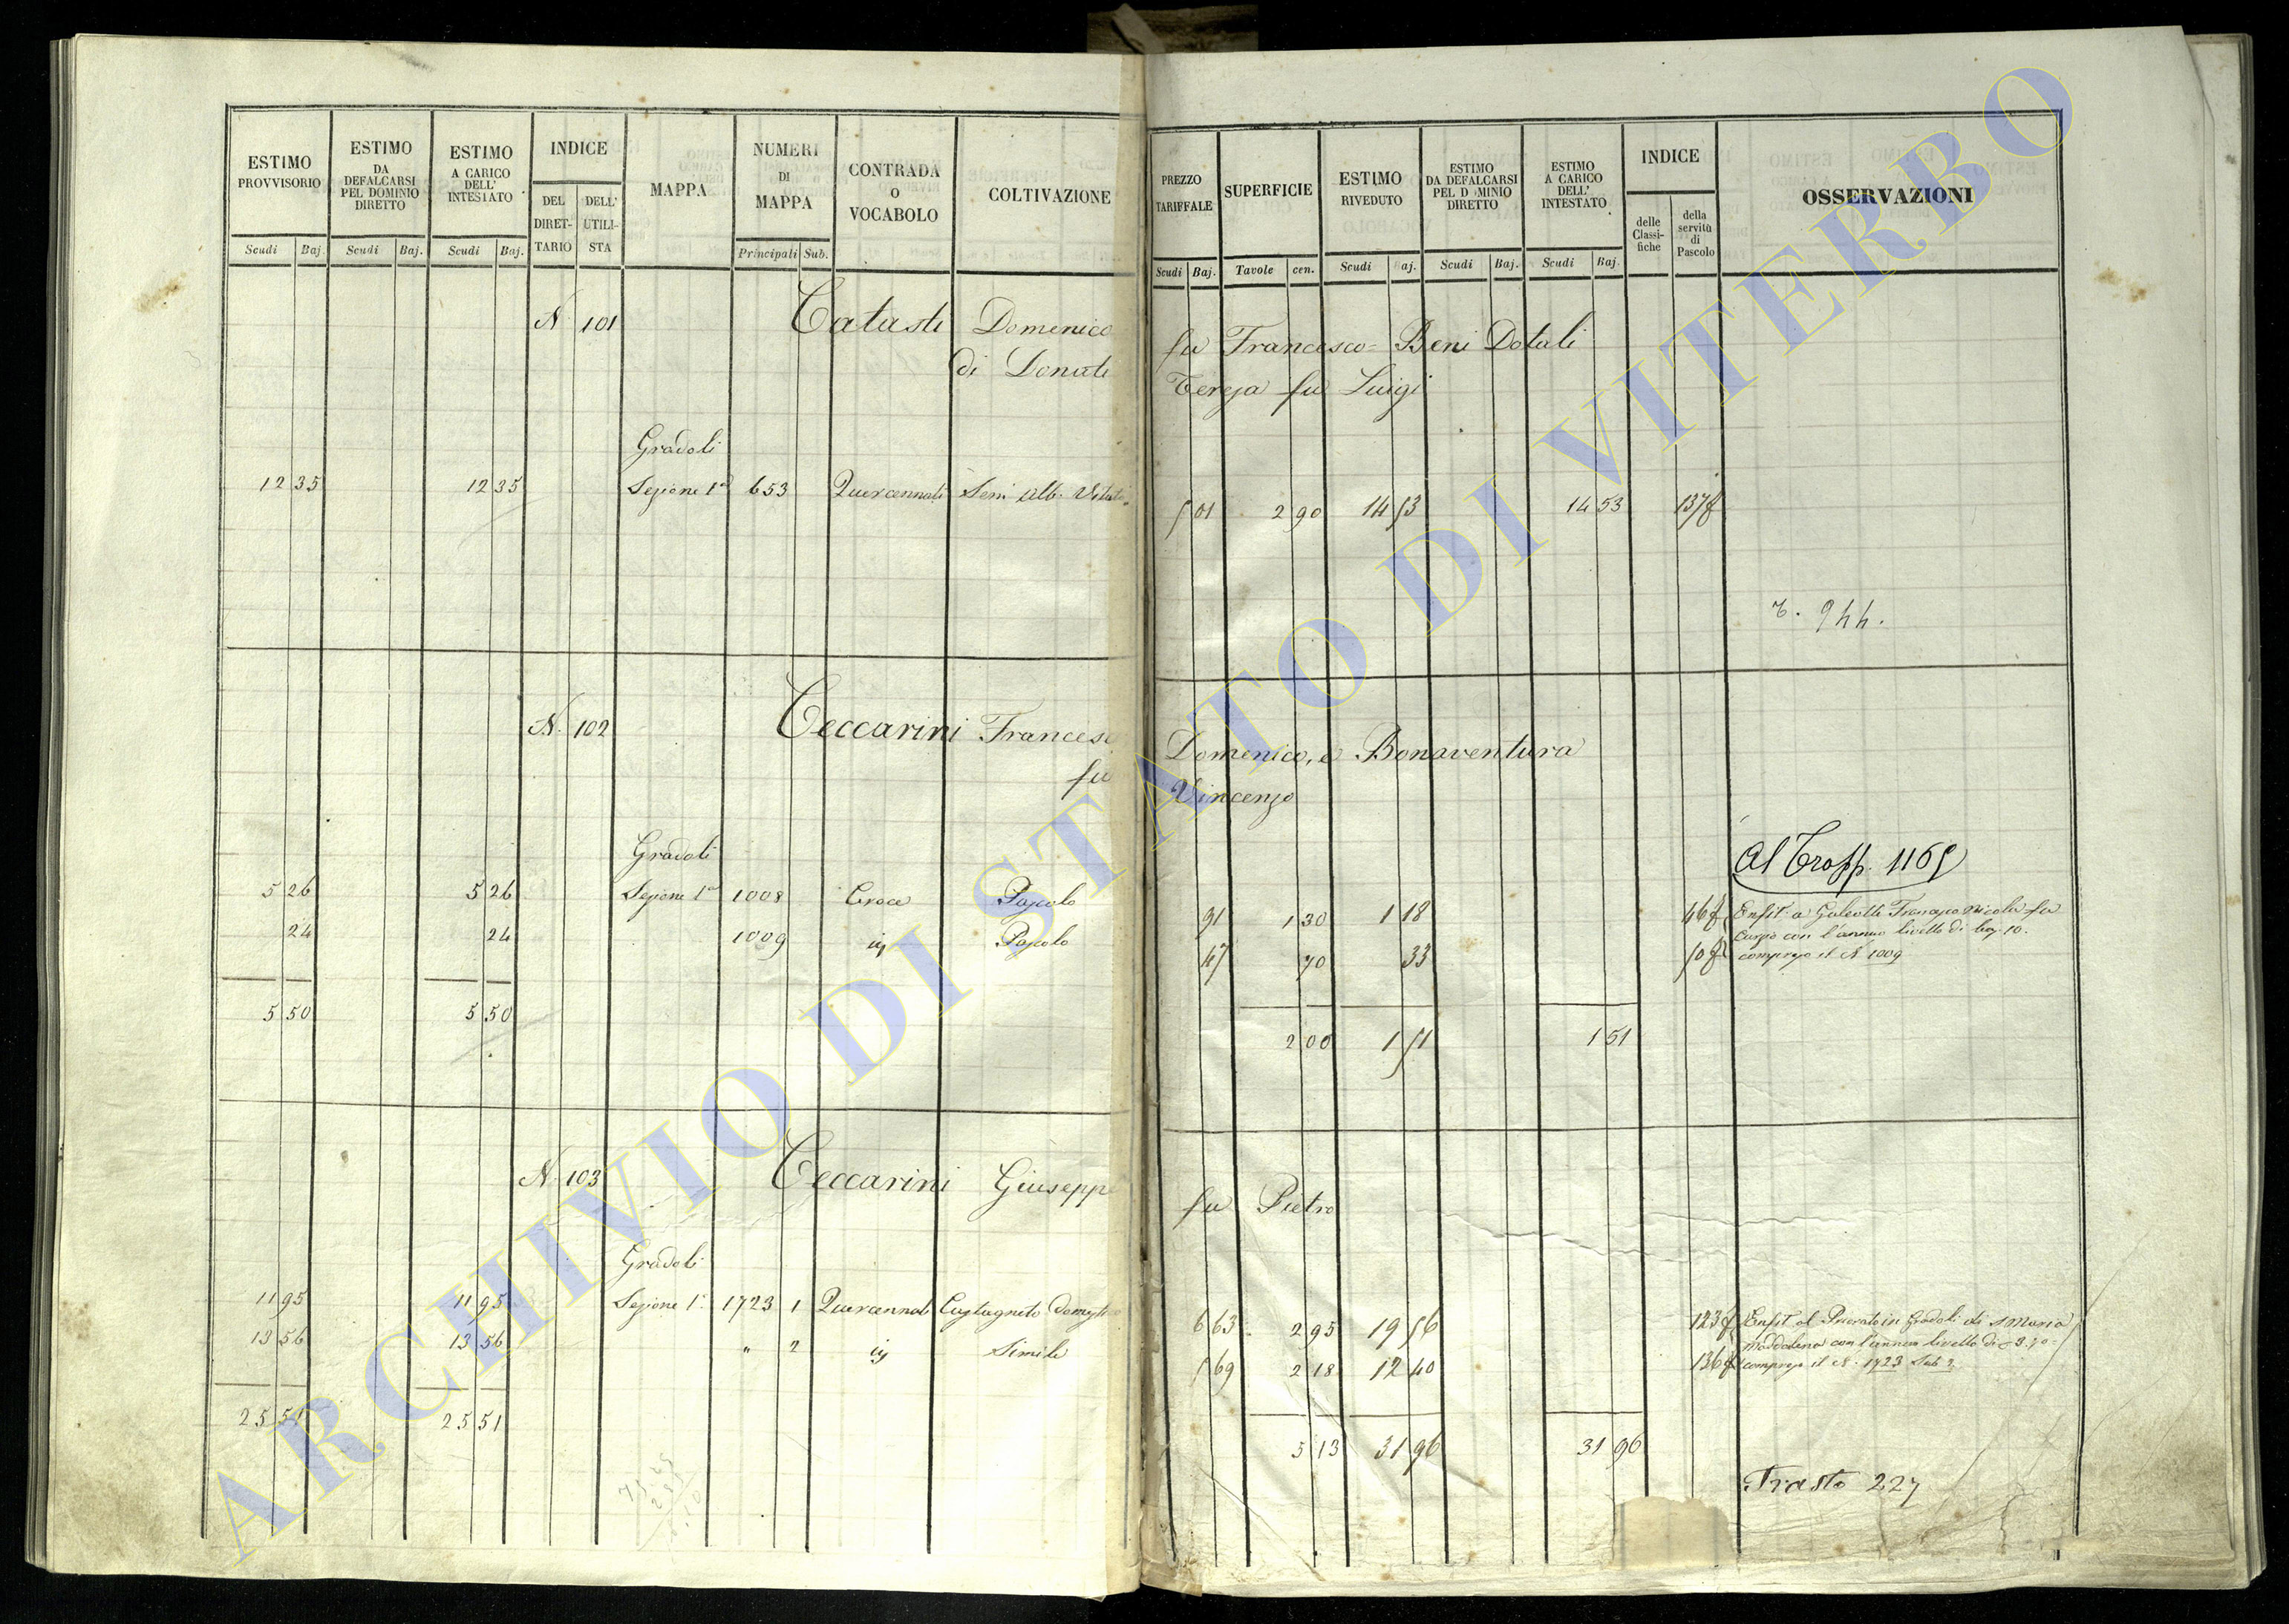 ESTIMO PROVVISORIO
Scudi Baj.
ESTIMO DA DEFALCARSI PEL DOMINIO DIRETTO
Scudi Baj.
ESTIMO A CARICO DELL' INTESTATO
Scudi Baj.
INDICE
DEL DIRETTARIO
DELL' UTILISTA
MAPPA
NUMERI DI MAPPA
Principali Sub.
CONTRADA O VOCABOLO
COLTIVAZIONE
PREZZO TARIFFALE
Scudi Baj.
SUPERFICIE
Tavole cen.
ESTIMO RIVEDUTO
Scudi Baj.
ESTIMO DA DEFALCARSI PEL DOMINIO DIRETTO
Scudi Baj.
ESTIMO A CARICO DELL' INTESTATO
Scudi Baj.
INDICE
delle Classifiche
della servitù di Pascolo
OSSERVAZIONI
N. 101 Catasti Domenico fu Francesco = Beni Dotali
di Donati Teresa fu Luigi
Gradoli
12 35 12 35 Sezione 1a 653 Quercennali Sem. Alb. Vitato 5 01 2 90 14 53 14 53 137 f
T. 944.
N. 102 Ceccarini Francesco Domenico, e Bonaventura
fu Vincenzo
Gradoli
Al Trasp. 1165
5 26 5 26 Sezione 1a 1008 Croce Pascolo 91 1 30 1 18 46 f Enfit. a Galeotti Nicola fu
con l'annuo livello di baj. 10.
24 24 1009 iq Pascolo 47 70 33 50 f compreso il N. 1009
5 50 5 50 2 00 1 51 1 51
N. 103 Ceccarini Giuseppe fu Pietro
Gradoli
11 95 11 95 Sezione 1a 1723 1 Quercennali Castagneto Domestico 6 63 2 95 19 56 123 f Enfit. al Priorato in Gradoli di S Maria
Maddalena con l'annuo livello di
13 56 13 56 " 2 iq Simile 5 69 2 18 12 40 136 f compreso il N. 1723 Sub 2
25 51 25 51 5 13 31 96 31 96
Trasto 227
ARCHIVIO DI STATO DI VITERBO